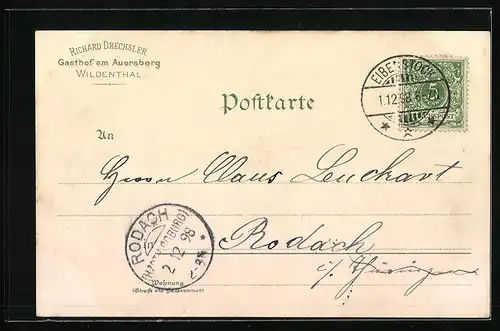 RICHARD DRECHSLER
Gasthof am Auersberg
WILDENTHAL.
EIBENSTOCK
1.12.98. 6-
5
Postkarte
An
Herrn Claus Leuckart
Rodach
i/Thüringen
RODACH
(HZGTH. COBURG)
2 12 98
Wohnung
(Straße und Hausnummer)